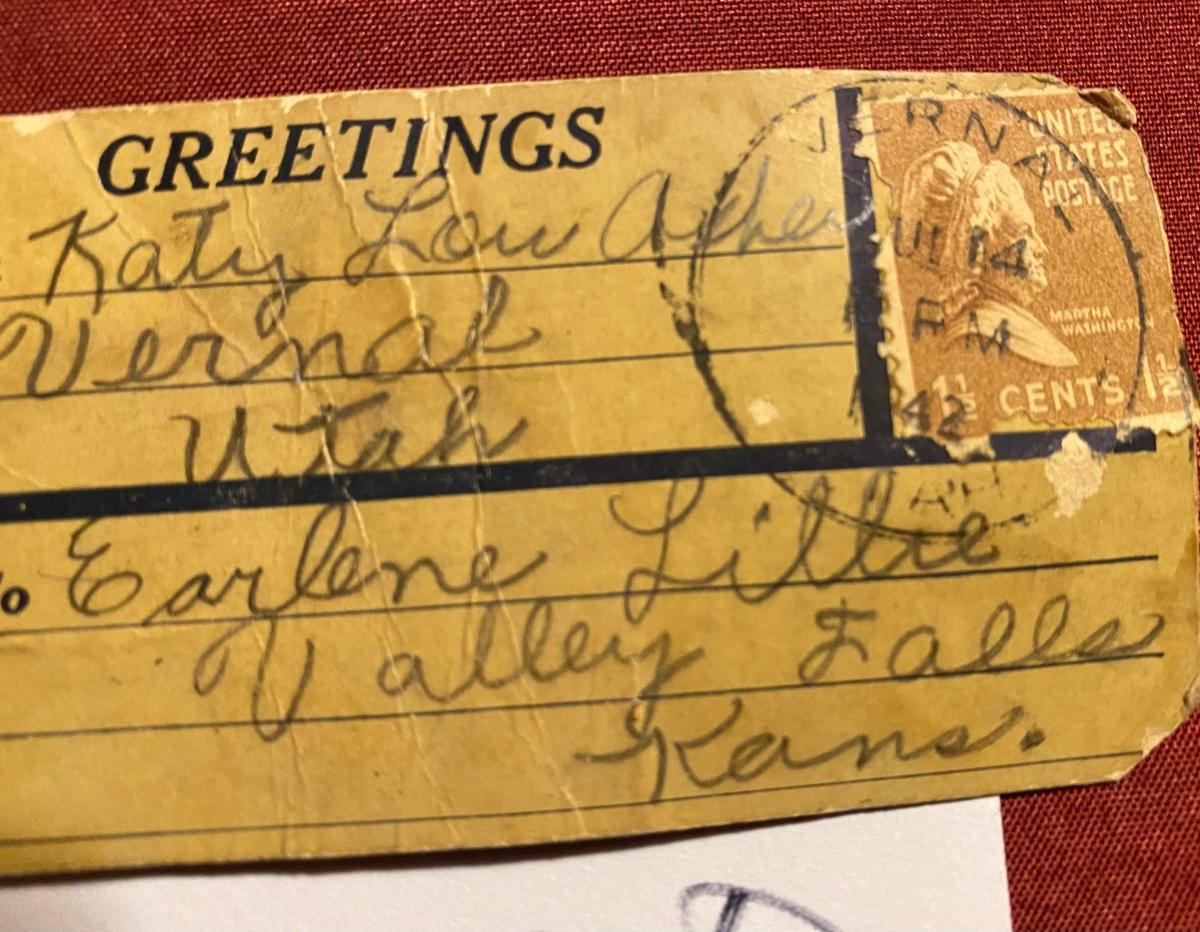 GREETINGS
Katy Lou
Vernal
Utah
VERNAL
JUL 14
PM
42
UNITED
STATES
POSTAGE
MARTHA
WASHINGTON
1½ CENTS 1½
o Earlene Lillie
Valley Falls
Kans.